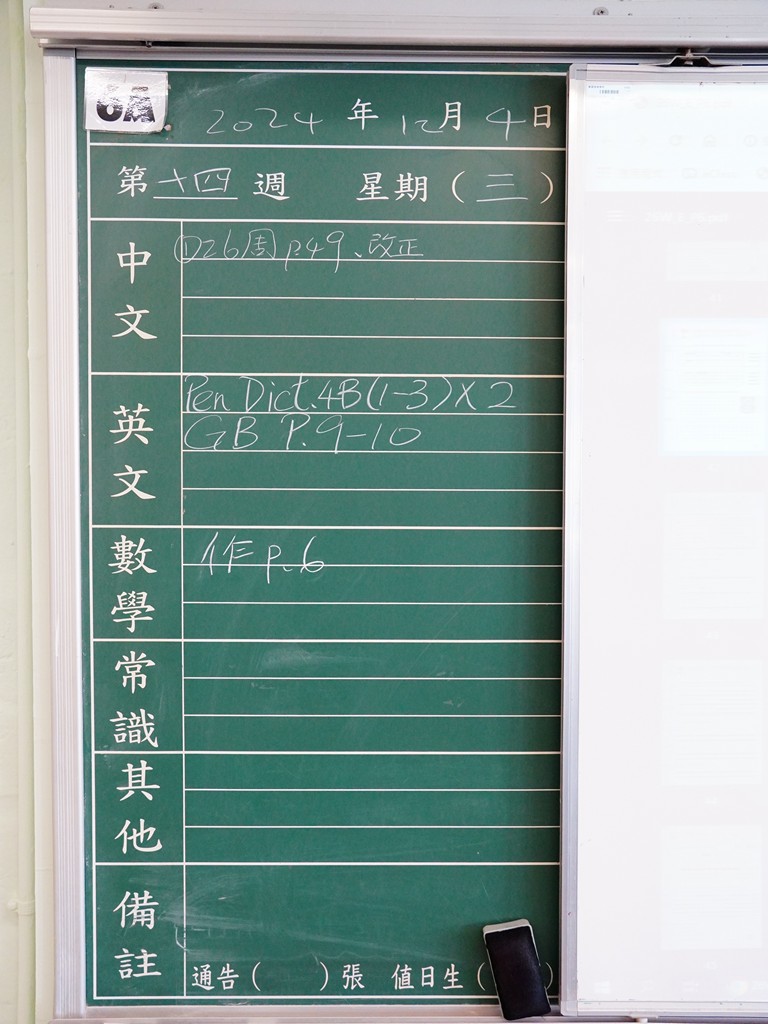 6A
2024 年 12月 4日
第十四週 星期(三)
中文
①Z6周 p.49、改正
英文
Pen Dict.4B(1-3)X2
GB P.9-10
數學
作 p.6
常識
其他
備註
通告( )張 值日生( )